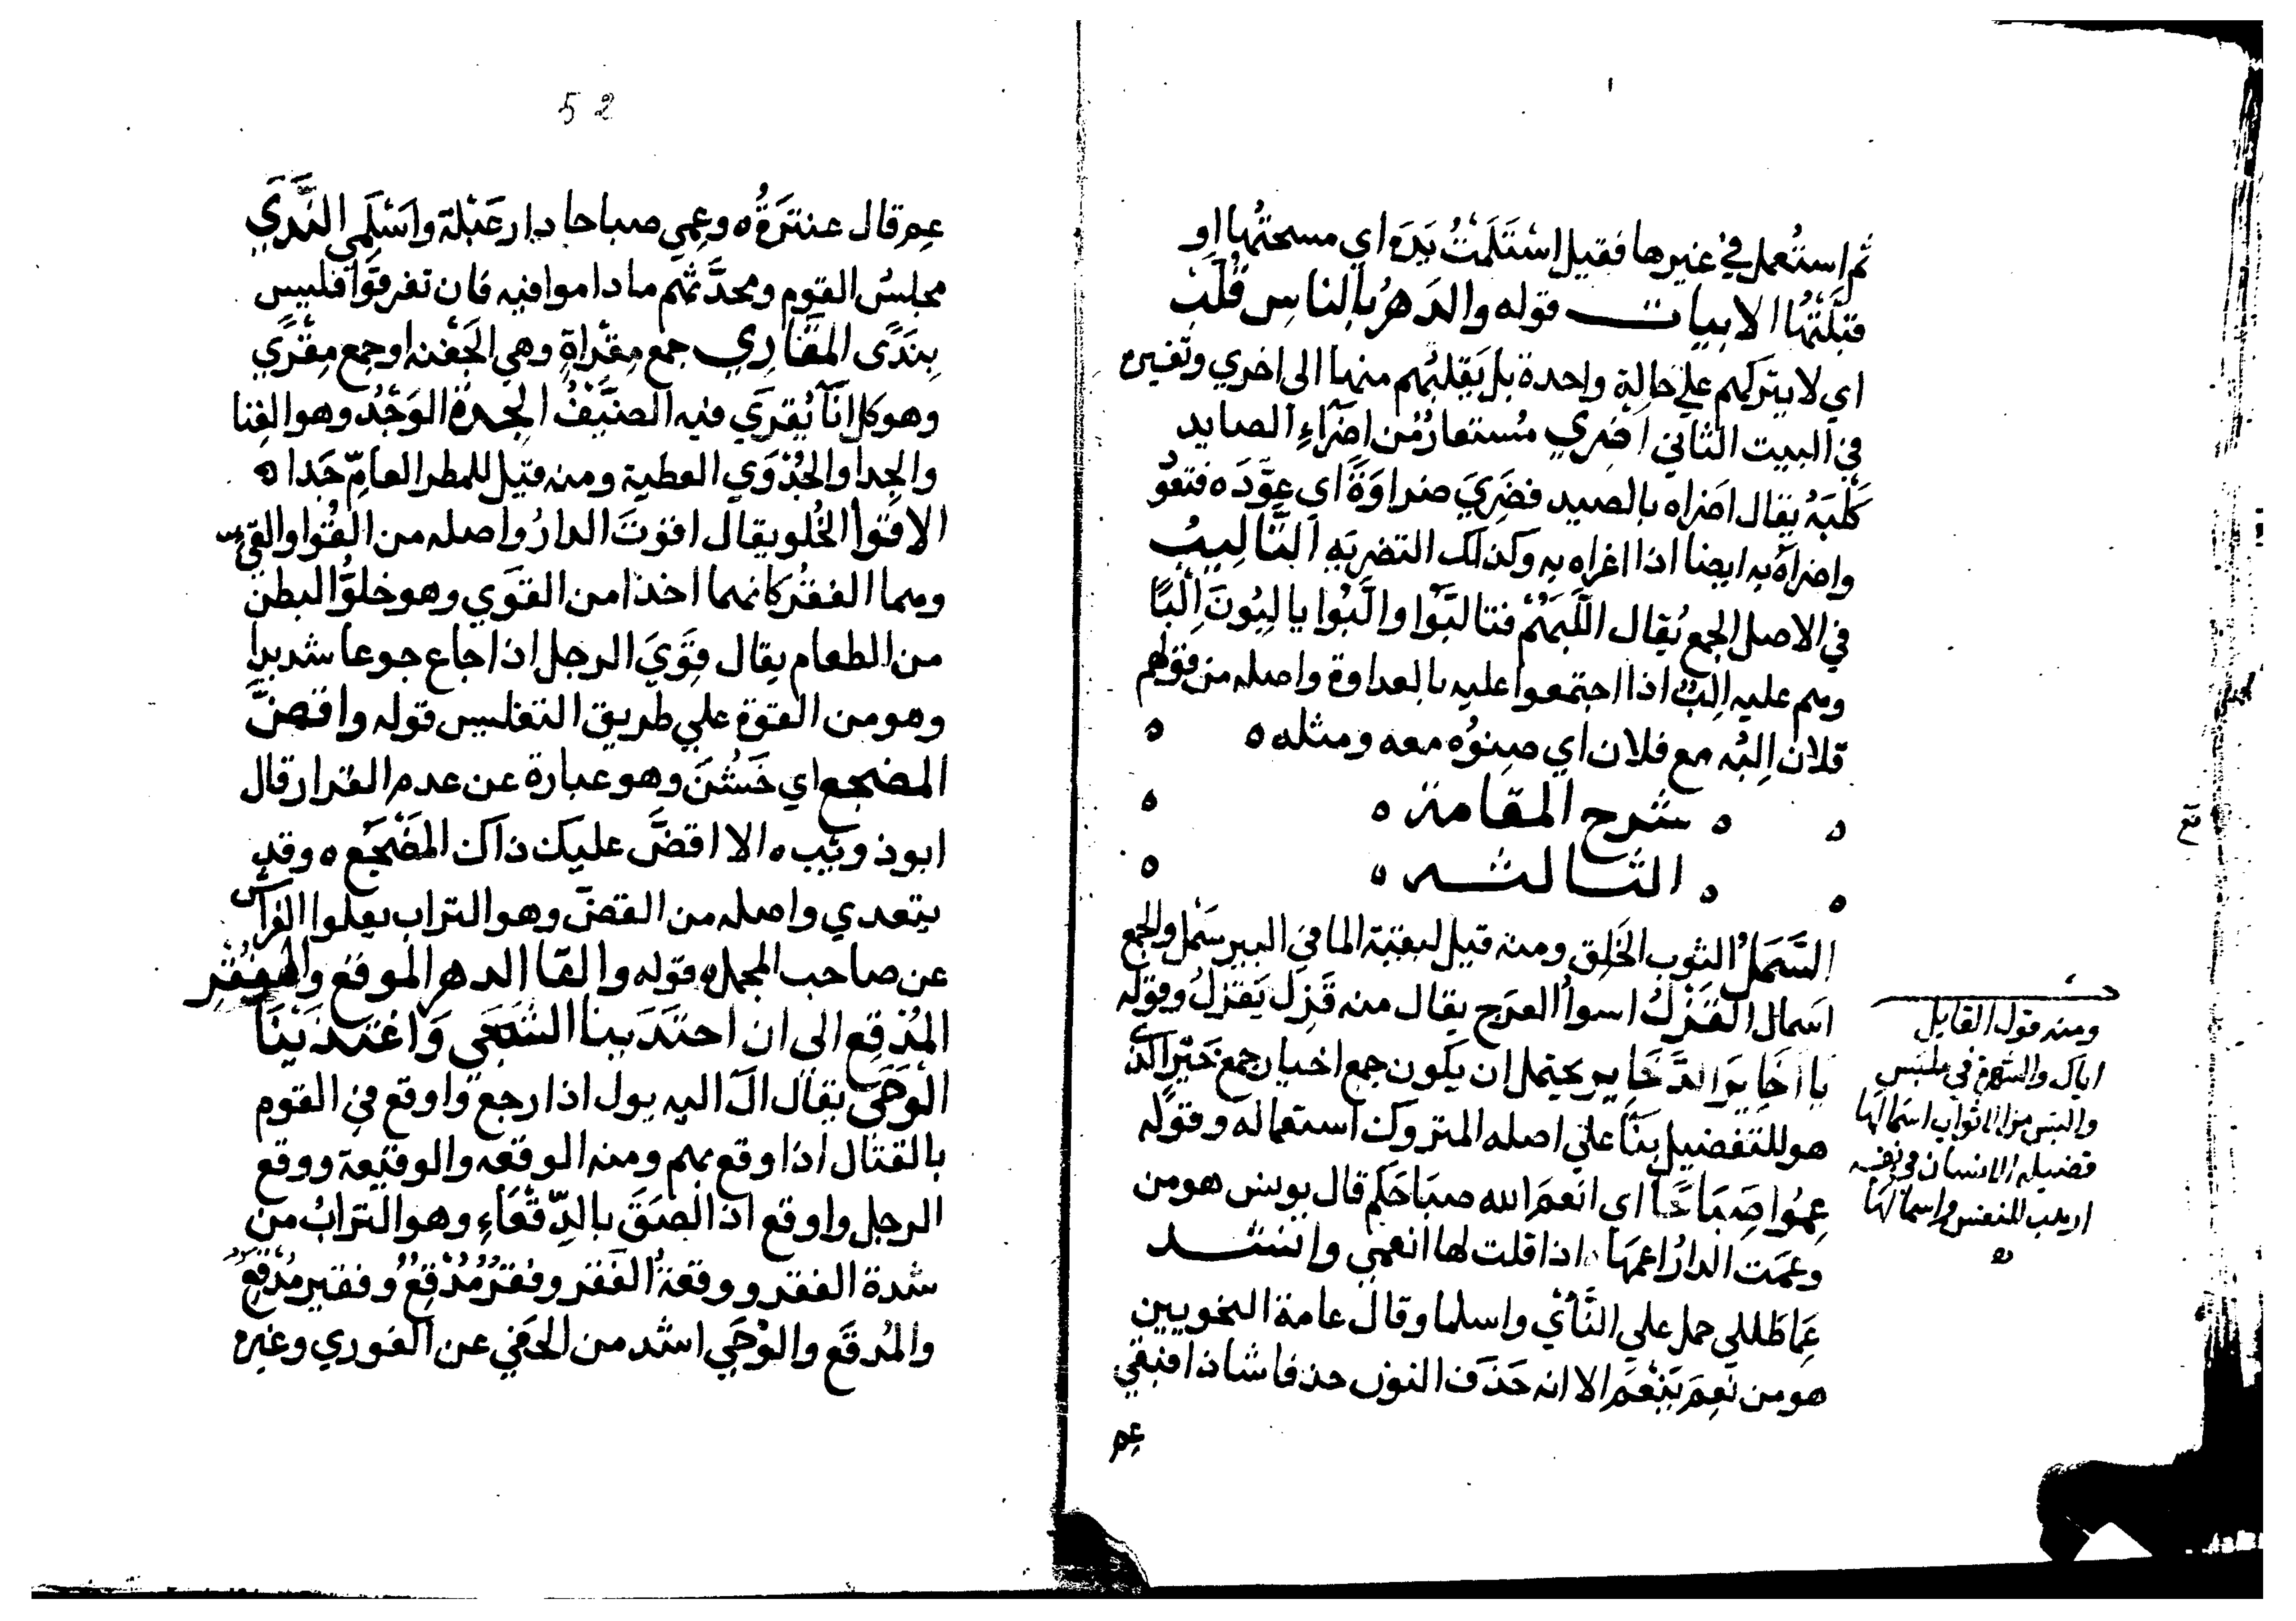 ثم استُعمل في غيرها فقيل اسْتَلَمْتُ يَدَه اي مسحتُها او
قَبَّلْتُها الابيات قوله والدهرُ بالناسِ قُلَّب
اي لا يتركهم علي حالة واحدة بل يقلبُهم منها الى اخري وتفسيره
في البيت الثاني اضري مُستعارٌ من اِضْرَآءِ الصايد
كَلْبَهُ يقال اضراه بالصيد فضَرِيَ ضراوَةً اي عوَّدَه فتعوَّد
واضراهُ به ايضا اذا اغراه به وكذلك التضرية التأليبُ
في الاصل الجمع يُقال اَلَّبَهُمْ فتألَّبُوا وأَلَبُوا يألِبُونَ اَلْبًا
وهم عليه اِلْبٌ اذا اجتمعوا عليه بالعداوة واصله من قولهم
فلان اِلْبُه مع فلان اي صِنْوُه معه ومثله ه
شرح المقامة
الثالثه
السَّمَلُ الثوب الخَلِق ومنه قيل لبقية الما في البير سَمَل والجمع
اسمال القَزَلُ اسوأُ العرج يقال منه قَزِلَ يَقْزَلُ وقوله
يا اَخَايِرَ الذَّخَايِرِ يحتمل ان يكون جمع اخيار جمع خَيْرٍ الذي
هو للتفضيل بِنَآ على اصله المتروك استعماله وقوله
عِمُوا صَبَاحًا اي انعَمَ الله صبَاحَكم قال يونس هو من
وعَمَت الدارُ اعمُهَا اذا قلت لها انعمي وانشد
عِمَا طَلَلي جمل علي النَّأْيِ واسلما وقال عامة النحويين
هو من نَعِمَ يَنْعَمُ الا انه حَذَفَ النون حذفا شاذا فبقي
عِم
ومنه قول القايل
اياك والشهرة في ملبس
والبس من الاثواب اسمالها
فضيلة الانسان في نفسه
للنفس واسمالها
52
عِم قال عنترةُ ه وعِمِي صباحا دار عَبْلة واسْلَمي النَّدِيُّ
مجلسُ القوم ومحدَّثُهم ما داموا فيه فان تفرقوا فليس
بِنَدِيّ المَقَارِي جمع مِقْراةٍ وهي الجَفْنه او جمع مِقْرًي
وهو كل انآ يُقرَي فيه الضَّيْفُ الجِدةُ الوَجْدُ وهو الغِنا
والجدا والجَدْوَي العطية ومنه قيل للمطر العامّ جَدا ه
الاقوآ الخُلو يقال اقوَت الدارُ واصله من القَوا والقِيّ
وهما القفْر كانهما اخذا من القَوَي وهو خلوُّ البطن
من الطعام يقال قَوِيَ الرجل اذا جاع جوعا شديدا
وهو من القوة علي طريق التفليس قوله واقضَّ
المضجع اي خَشُنَ وهو عبارة عن عدم القرار قال
ابو ذويب ه الا اقضَّ عليك ذاك المَضْجَع ه وقد
يتعدي واصله من القضض وهو التراب يعلوا الفراش
عن صاحب المجمل ه قوله والقا الدهر الموقع والفقر
المُدْقِع الى ان احتذَينا الشَّجَى واغتذَيْنَا
الوَجَى يقال آلَ اليه يول اذا رجع واوقع في القوم
بالقتال اذا وقع بهم ومنه الوقعه والوقيعة ووقع
الرجل واوقع اذا الصَقَ بالدَّقْعَاءِ وهو الترابُ من
شدة الفقر ووقعةُ الفقر وفقرٌ مُدْقِعٌ وفقير مُدْقِعٌ
والمُدقَع والوَجَي اشد من الحَفَي عن الغوري وغيره